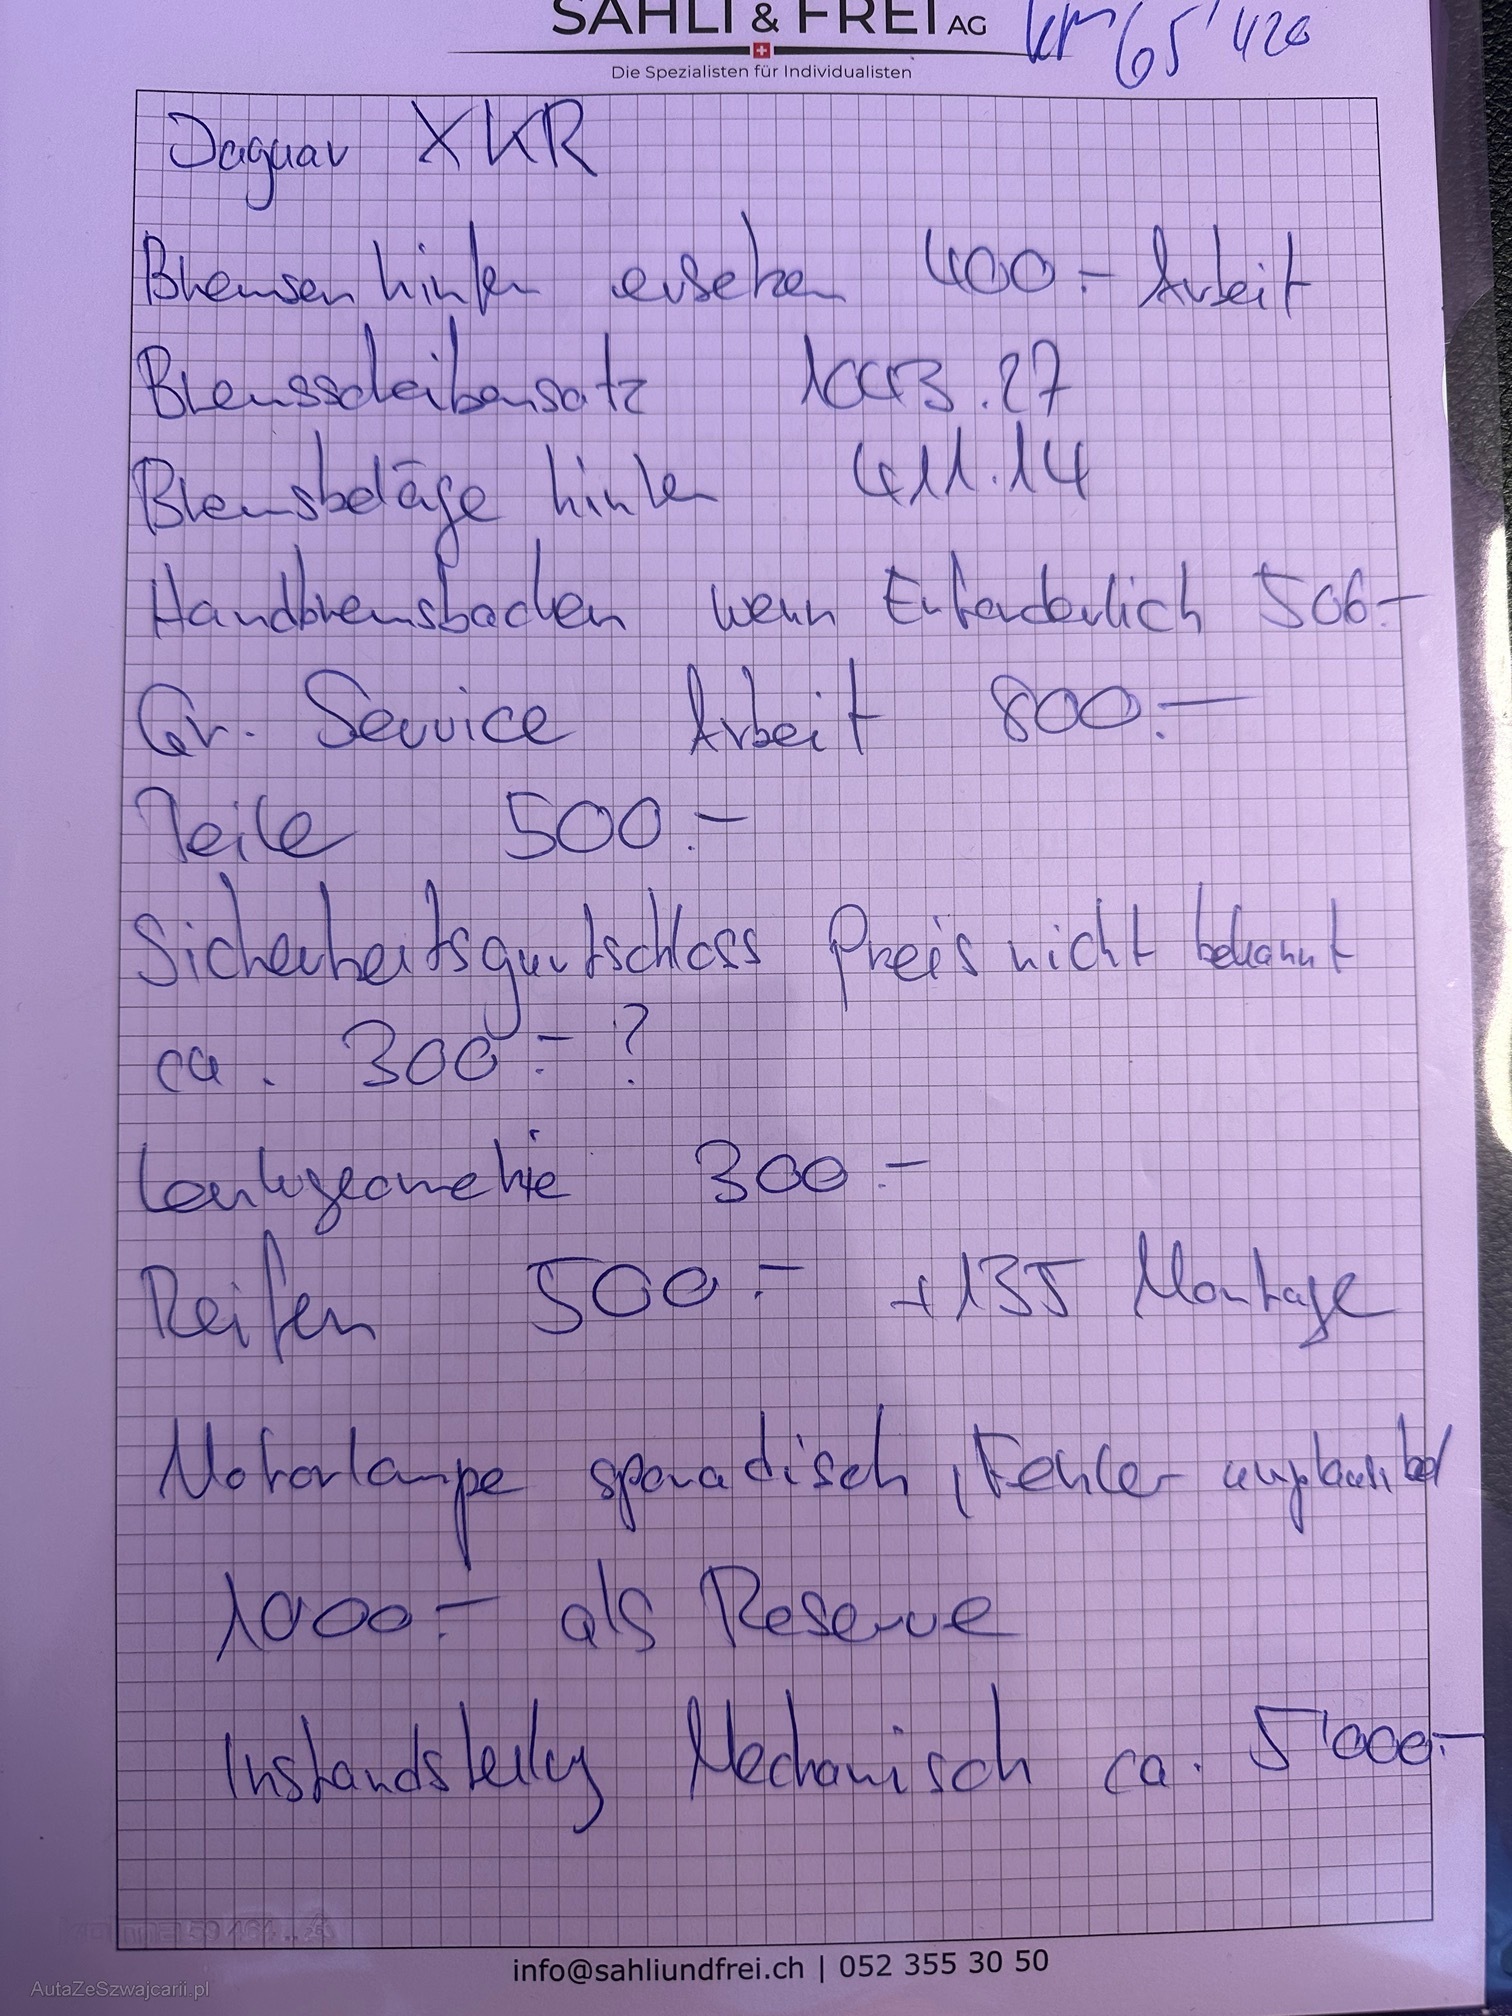 SAHLI & FREI AG
km 65'420
Die Spezialisten für Individualisten
Jaguar XKR
Bremsen hinten ersetzen 400.- Arbeit
Bremsscheibensatz 1003.27
Bremsbeläge hinten 411.14
Handbremsbacken wenn Erforderlich 506.-
Gr. Service Arbeit 800.-
Teile 500.-
Sicherheitsgurtschloss Preis nicht bekannt
ca. 300.- ?
Lenkgeometrie 300.-
Reifen 500.- +135 Montage
Motorlampe sporadisch, Fehler unplausibel
1000.- als Reserve
Instandstellung Mechanisch ca. 5'000.-
info@sahliundfrei.ch | 052 355 30 50
AutaZeSzwajcarii.pl